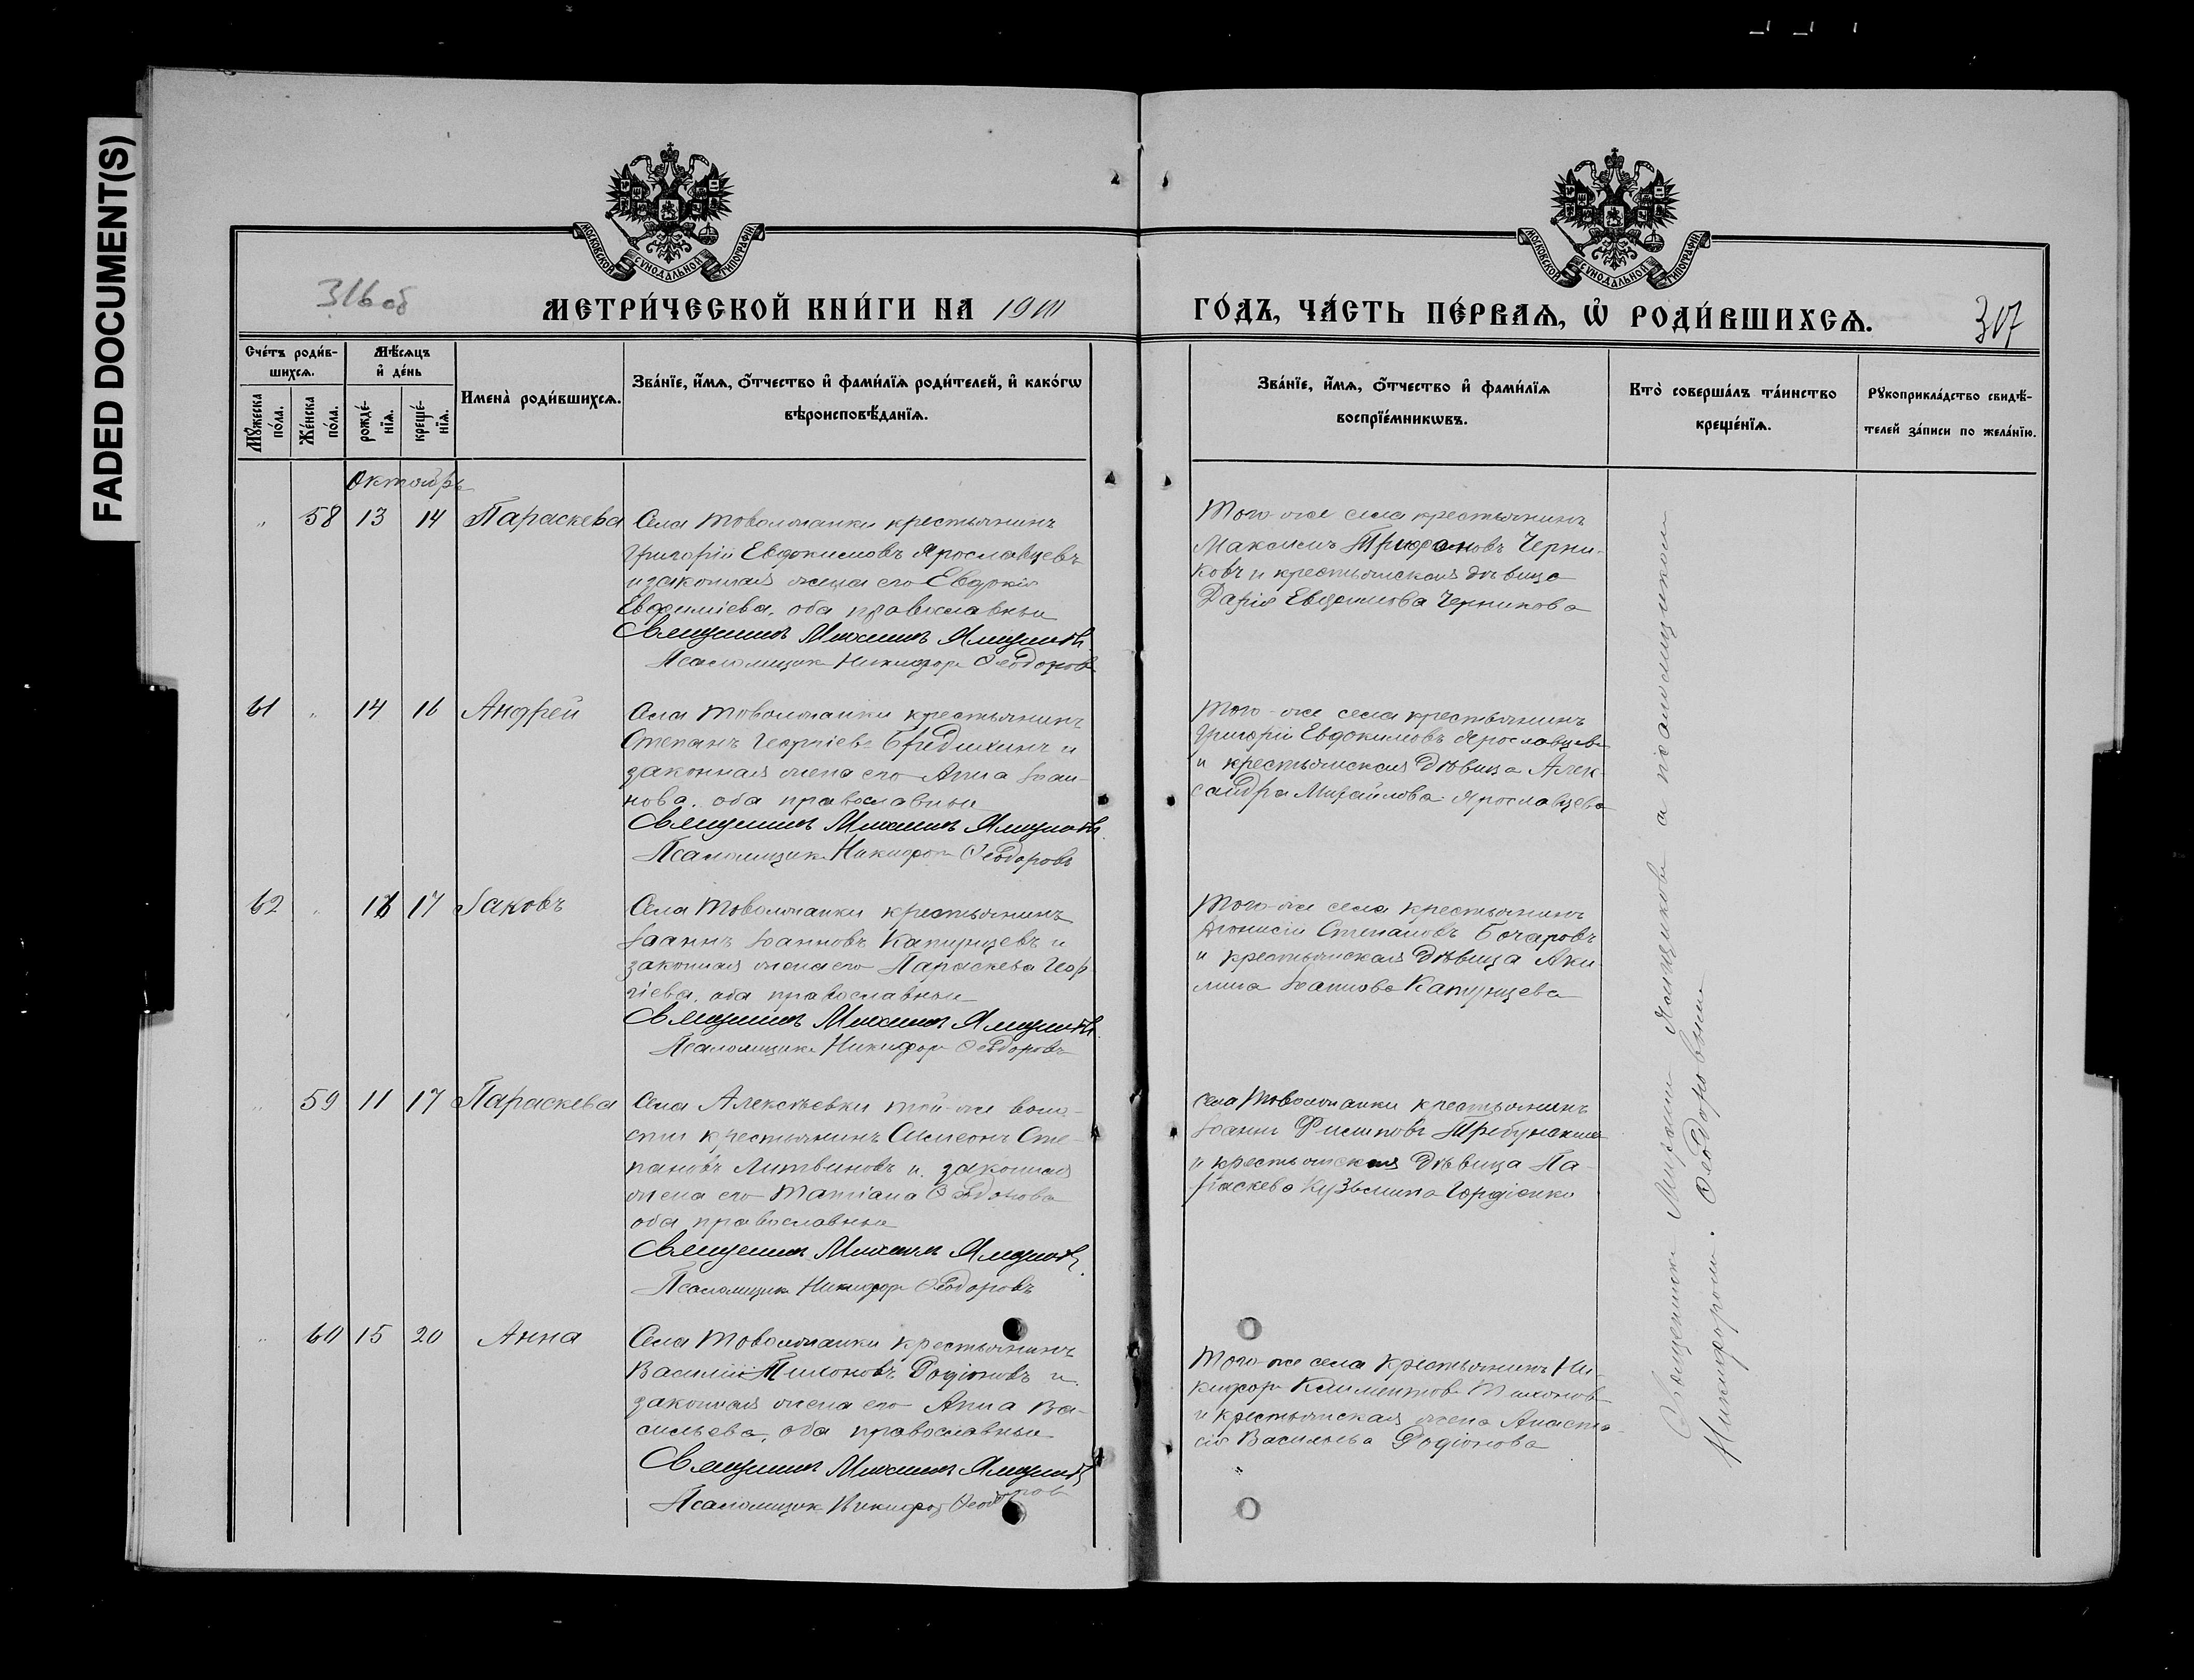 FADED DOCUMENT(S)
МОСКОВСКОЙ СѴНОДАЛЬНОЙ ТИПОГРАФІИ
МОСКОВСКОЙ СѴНОДАЛЬНОЙ ТИПОГРАФІИ
316 об
МЕТРИ́ЧЕСКОЙ КНИ́ГИ НА 19
ГО́ДЪ, ЧА́СТЬ ПЕ́РВАѦ, Ѡ҆ РОДИ́ВШИХСѦ.
307
Сче́тъ роди́в-
шихсѧ.
Мꙋ́жеска по́ла.
Же́нска по́ла.
Мѣ́сѧцъ
и҆ де́нь
рожде́-
нїѧ.
креще́-
нїѧ.
Имена̀ роди́вшихсѧ.
Зва́нїе, и҆́мѧ, ѻ҆́тчество и҆ фами́лїѧ роди́телей, и҆ како́гѡ
вѣроисповѣ́данїѧ.
Зва́нїе, и҆́мѧ, ѻ҆́тчество и҆ фами́лїѧ
воспрїе́мникѡвъ.
Кто̀ соверша́лъ та́инство
креще́нїѧ.
Рꙋкоприкла́дство свидѣ́-
телей за́писи по жела́нїю.
Октябрь
" 58 13 14 Параскева
Села Товоложанки крестьянинъ
Григорій Евдокимовъ Ярославцевъ
и законная жена его Евдокія
Евфиміева, оба православные
Священникъ Михаилъ
Псаломщикъ Никифоръ Ѳеодоровъ
Того-же села крестьянинъ
Максимъ Трифоновъ Черни-
ковъ и крестьянская дѣвица
Дарія Черникова
61 " 14 16 Андрей
Села Товоложанки крестьянинъ
Степанъ Георгіевъ Бредихинъ и
законная жена его Анна Іоан-
нова, оба православные
Священникъ Михаилъ
Псаломщикъ Никифоръ Ѳеодоровъ
Того-же села крестьянинъ
Григорій Евдокимовъ Ярославцевъ
и крестьянская дѣвица Алек-
сандра Михайлова Ярославцева
62 " 16 17 Іаковъ
Села Товоложанки крестьянинъ
Іоаннъ Іоанновъ Капунцевъ и
законная жена его Параскева Геор-
гіева, оба православные
Священникъ Михаилъ
Псаломщикъ Никифоръ Ѳеодоровъ
Того-же села крестьянинъ
Діонисій Степановъ Бочаровъ
и крестьянская дѣвица Аки-
лина Іоаннова Капунцева
" 59 11 17 Параскева
Села Алексѣевки той-же воло-
сти крестьянинъ Симеонъ Сте-
пановъ Литвиновъ и законная
жена его Татіана Ѳеодорова
оба православные
Священникъ Михаилъ
Псаломщикъ Никифоръ Ѳеодоровъ
Села Товоложанки крестьянинъ
Іоаннъ Филиповъ
и крестьянская дѣвица Па-
раскева Кузьмина Гордіенко
" 60 15 20 Анна
Села Товоложанки крестьянинъ
Василій Тихоновъ Родіоновъ и
законная жена его Анна Ва-
сильева, оба православные
Священникъ Михаилъ
Псаломщикъ Никифоръ Ѳеодоровъ
Того-же села крестьянинъ Ни-
кифоръ Климентовъ Тихоновъ
и крестьянская жена Анаста-
сія Васильева Родіонова
"
Священникъ Михаилъ а псаломщикомъ
Никифоромъ Ѳеодоровымъ